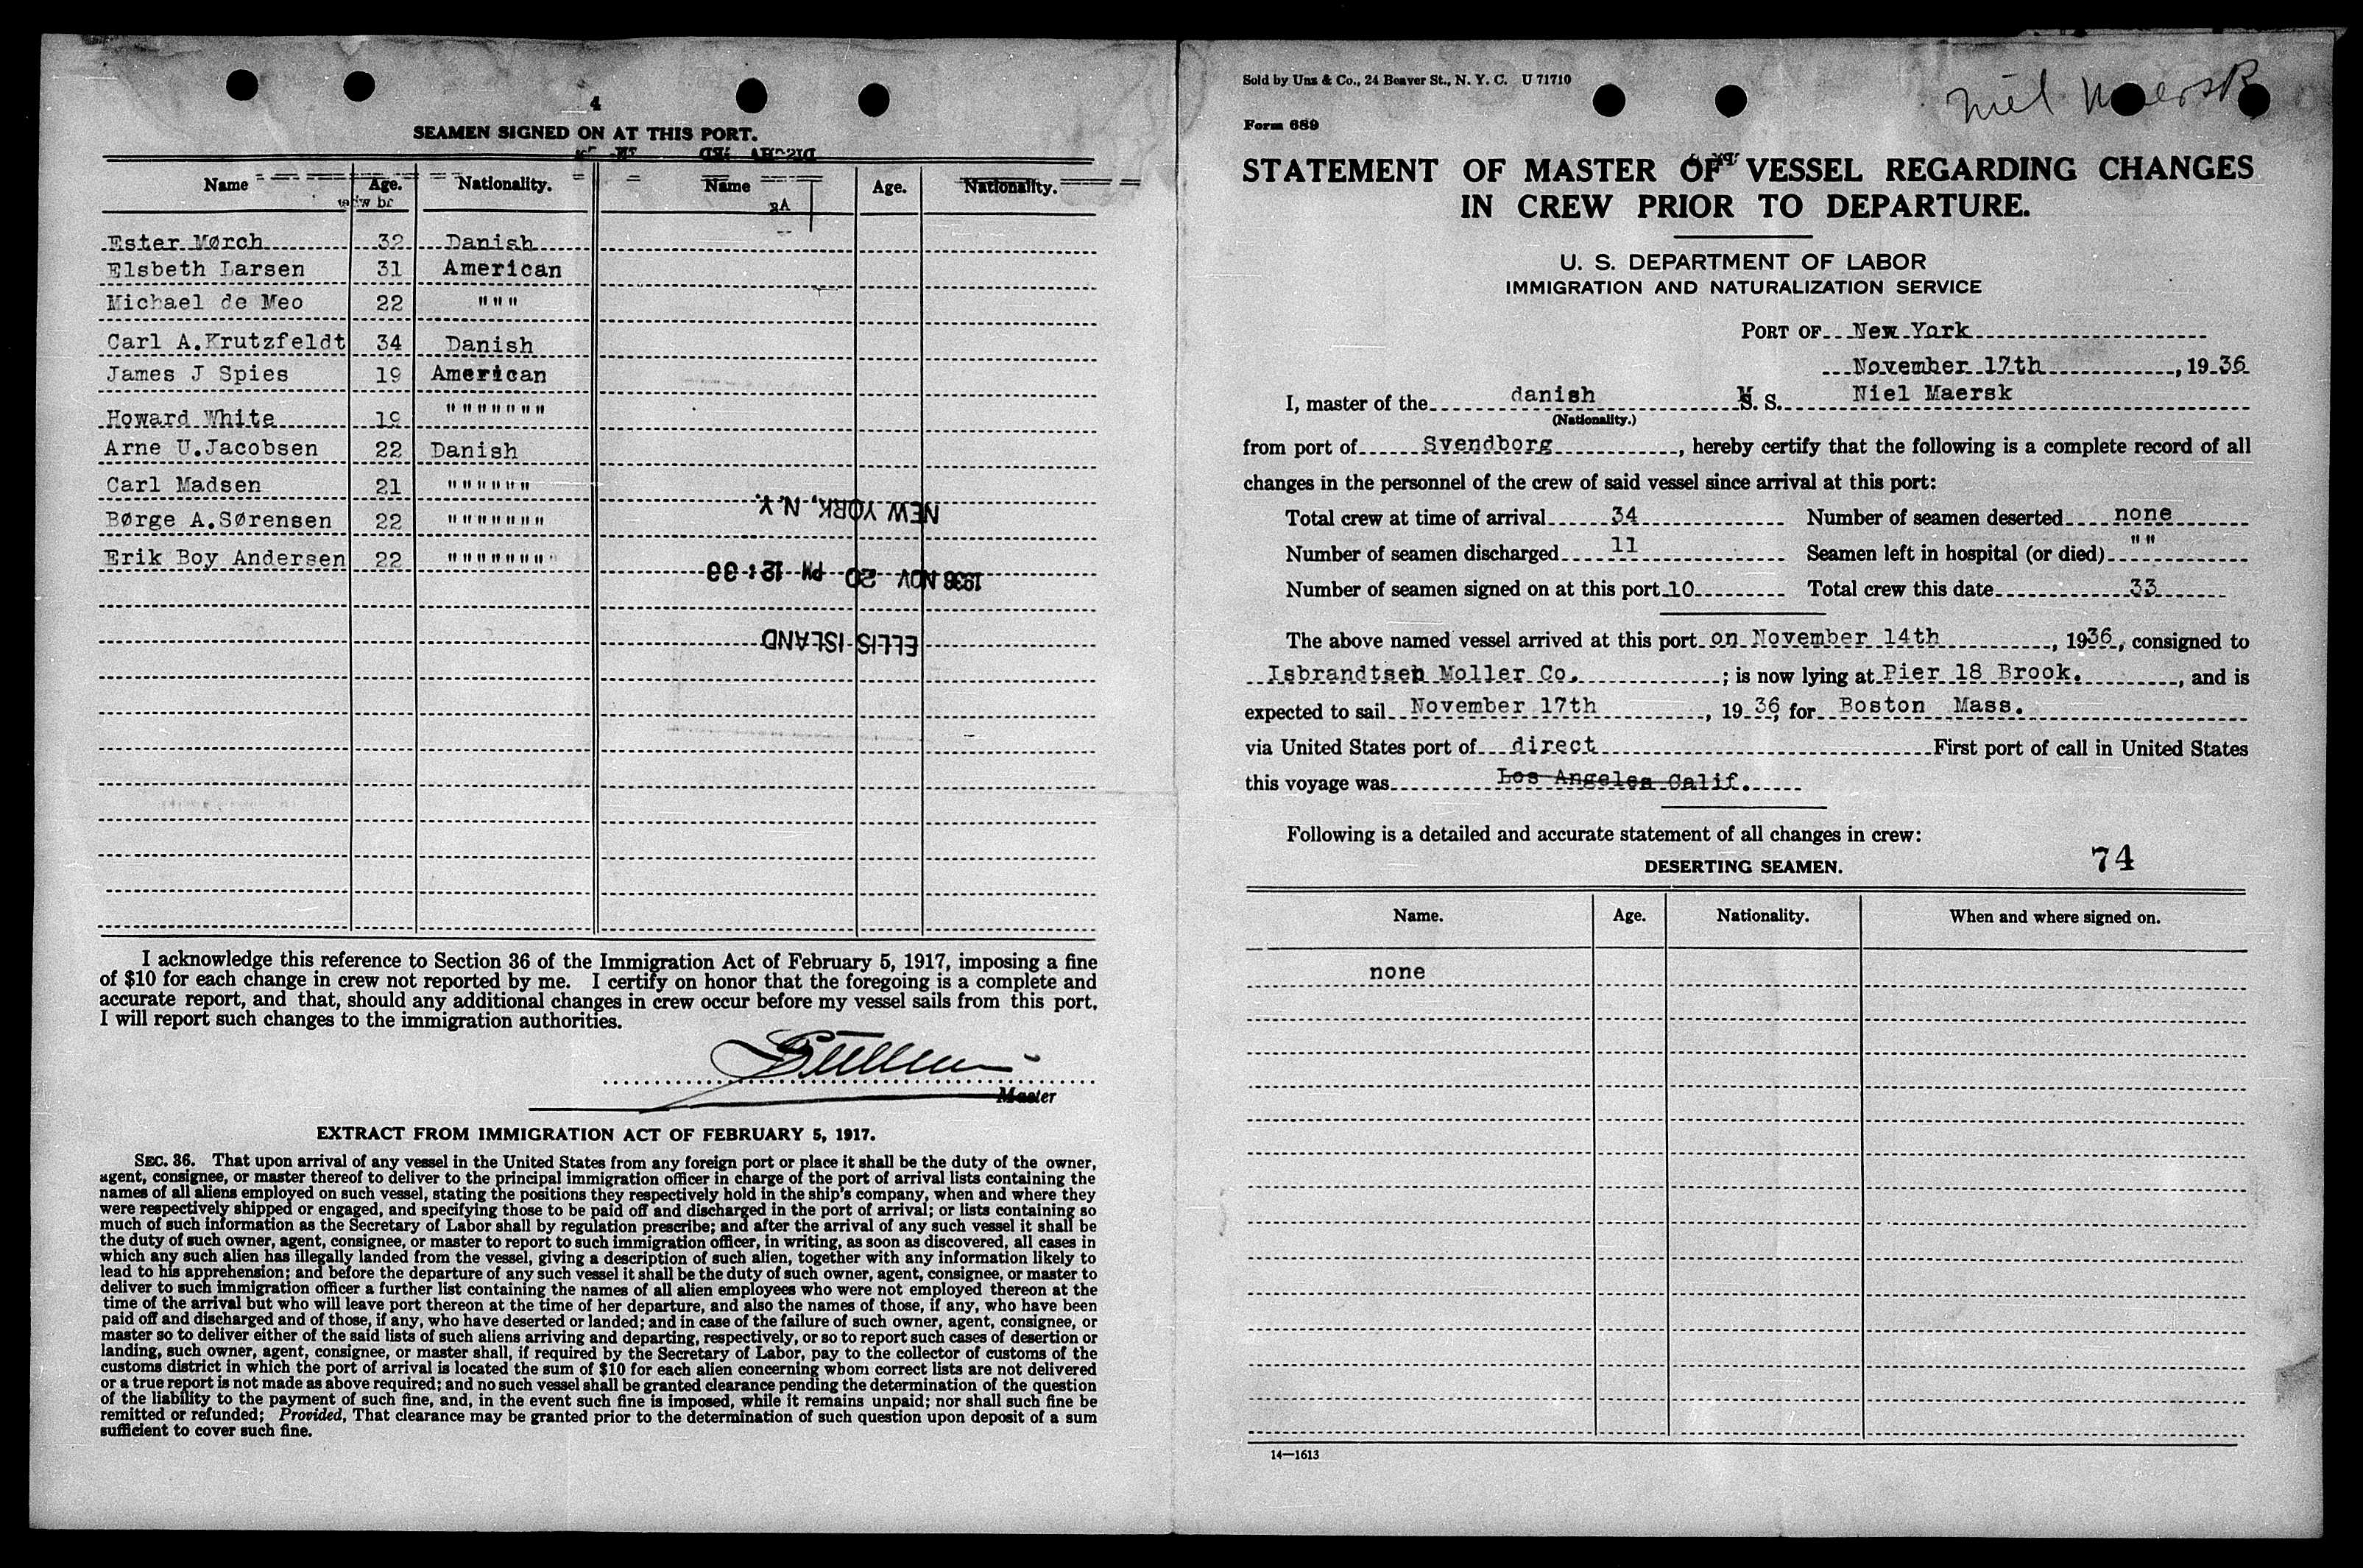 4
SEAMEN SIGNED ON AT THIS PORT.
Name Age. Nationality. Name Age. Nationality.
Ester Mørch 32 Danish
Elsbeth Larsen 31 American
Michael de Meo 22 " " "
Carl A.Krutzfeldt 34 Danish
James J Spies 19 American
Howard White 19 " " " " " " "
Arne U.Jacobsen 22 Danish
Carl Madsen 21 " " " " " "
Børge A.Sørensen 22 " " " " " " "
Erik Boy Andersen 22 " " " " " " "
NEW YORK, N.Y.
1936 NOV 20 PM 12:39
ELLIS ISLAND
I acknowledge this reference to Section 36 of the Immigration Act of February 5, 1917, imposing a fine
of $10 for each change in crew not reported by me. I certify on honor that the foregoing is a complete and
accurate report, and that, should any additional changes in crew occur before my vessel sails from this port,
I will report such changes to the immigration authorities.
Master
EXTRACT FROM IMMIGRATION ACT OF FEBRUARY 5, 1917.
SEC. 36. That upon arrival of any vessel in the United States from any foreign port or place it shall be the duty of the owner,
agent, consignee, or master thereof to deliver to the principal immigration officer in charge of the port of arrival lists containing the
names of all aliens employed on such vessel, stating the positions they respectively hold in the ship's company, when and where they
were respectively shipped or engaged, and specifying those to be paid off and discharged in the port of arrival; or lists containing so
much of such information as the Secretary of Labor shall by regulation prescribe; and after the arrival of any such vessel it shall be
the duty of such owner, agent, consignee, or master to report to such immigration officer, in writing, as soon as discovered, all cases in
which any such alien has illegally landed from the vessel, giving a description of such alien, together with any information likely to
lead to his apprehension; and before the departure of any such vessel it shall be the duty of such owner, agent, consignee, or master to
deliver to such immigration officer a further list containing the names of all alien employees who were not employed thereon at the
time of the arrival but who will leave port thereon at the time of her departure, and also the names of those, if any, who have been
paid off and discharged and of those, if any, who have deserted or landed; and in case of the failure of such owner, agent, consignee, or
master so to deliver either of the said lists of such aliens arriving and departing, respectively, or so to report such cases of desertion or
landing, such owner, agent, consignee, or master shall, if required by the Secretary of Labor, pay to the collector of customs of the
customs district in which the port of arrival is located the sum of $10 for each alien concerning whom correct lists are not delivered
or a true report is not made as above required; and no such vessel shall be granted clearance pending the determination of the question
of the liability to the payment of such fine, and, in the event such fine is imposed, while it remains unpaid; nor shall such fine be
remitted or refunded; Provided, That clearance may be granted prior to the determination of such question upon deposit of a sum
sufficient to cover such fine.
Sold by Unz & Co., 24 Beaver St., N. Y. C. U 71710
Niel Maersk
Form 689
STATEMENT OF MASTER OF VESSEL REGARDING CHANGES
IN CREW PRIOR TO DEPARTURE.
U. S. DEPARTMENT OF LABOR
IMMIGRATION AND NATURALIZATION SERVICE
PORT OF New York
November 17th, 1936
I, master of the danish M. S. Niel Maersk
(Nationality.)
from port of Svendborg, hereby certify that the following is a complete record of all
changes in the personnel of the crew of said vessel since arrival at this port:
Total crew at time of arrival 34 Number of seamen deserted none
Number of seamen discharged 11 Seamen left in hospital (or died) " "
Number of seamen signed on at this port 10 Total crew this date 33
The above named vessel arrived at this port on November 14th, 1936, consigned to
Isbrandtsen Moller Co. ; is now lying at Pier 18 Brook., and is
expected to sail November 17th, 1936, for Boston Mass.
via United States port of direct First port of call in United States
this voyage was Los Angeles Calif.
Following is a detailed and accurate statement of all changes in crew:
DESERTING SEAMEN.
74
Name. Age. Nationality. When and where signed on.
none
14—1613